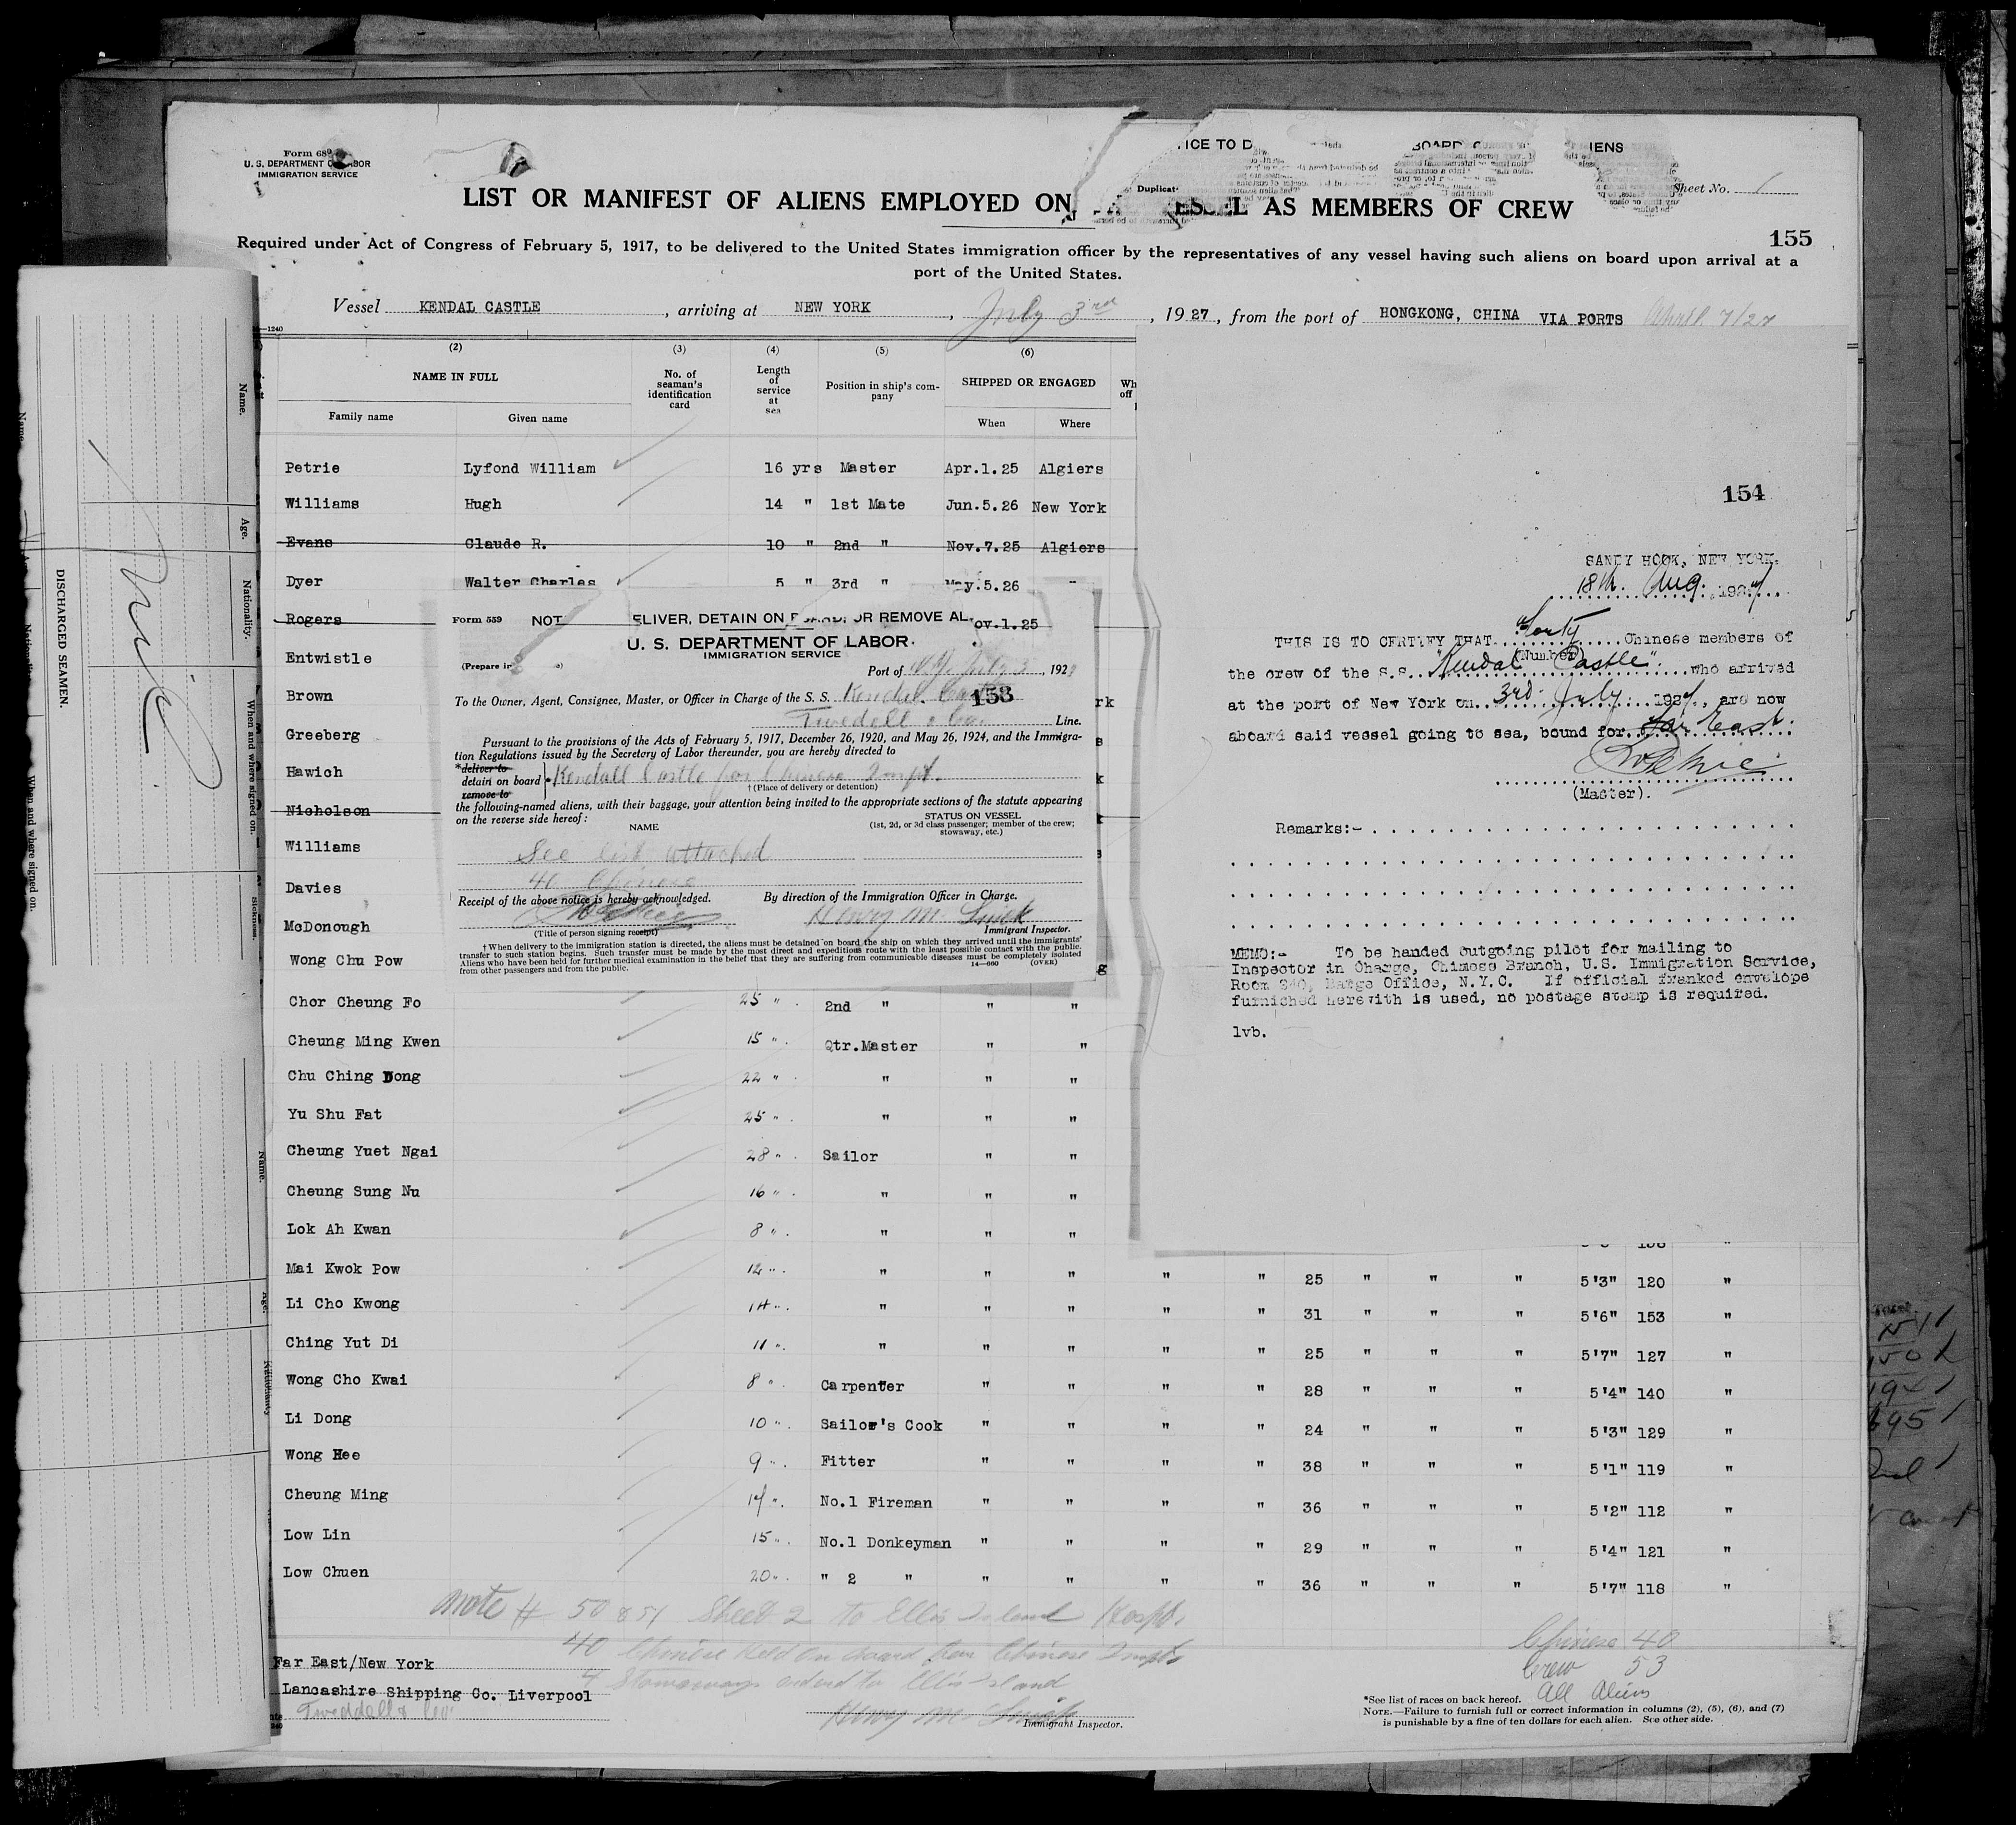 Form 689
U. S. DEPARTMENT OF LABOR
IMMIGRATION SERVICE
Duplicat
Sheet No. 1
LIST OR MANIFEST OF ALIENS EMPLOYED ON VESSEL AS MEMBERS OF CREW
155
Required under Act of Congress of February 5, 1917, to be delivered to the United States immigration officer by the representatives of any vessel having such aliens on board upon arrival at a
port of the United States.
Vessel KENDAL CASTLE, arriving at NEW YORK, July 3rd, 1927, from the port of HONGKONG, CHINA VIA PORTS April 7/27
(2) (3) (4) (5) (6)
NAME IN FULL
Family name Given name
No. of seaman's identification card
Length of service at sea
Position in ship's company
SHIPPED OR ENGAGED
When Where
Petrie Lyfond William 16 yrs Master Apr.1.25 Algiers
Williams Hugh 14 " 1st Mate Jun.5.26 New York
Evans Claude R. 10 " 2nd " Nov.7.25 Algiers
Dyer Walter Charles 5 " 3rd " May.5.26 "
Rogers ov.1.25
Entwistle
Brown
Greeberg
Hawich
Nicholson
Williams
Davies
McDonough
Wong Chu Pow
Chor Cheung Fo 25 " 2nd " " "
Cheung Ming Kwen 15 " Qtr.Master " "
Chu Ching Dong 22 " " " "
Yu Shu Fat 25 " " " "
Cheung Yuet Ngai 28 " Sailor " "
Cheung Sung Nu 16 " " " "
Lok Ah Kwan 8 " " " "
Mai Kwok Pow 12 " " " " " " 25 " " " 5'3" 120 "
Li Cho Kwong 14 " " " " " " 31 " " " 5'6" 153 "
Ching Yut Di 11 " " " " " " 25 " " " 5'7" 127 "
Wong Cho Kwai 8 " Carpenter " " " " 28 " " " 5'4" 140 "
Li Dong 10 " Sailor's Cook " " " " 24 " " " 5'3" 129 "
Wong Hee 9 " Fitter " " " " 38 " " " 5'1" 119 "
Cheung Ming 14 " No.1 Fireman " " " " 36 " " " 5'2" 112 "
Low Lin 15 " No.1 Donkeyman " " " " 29 " " " 5'4" 121 "
Low Chuen 20 " " 2 " " " " " 36 " " " 5'7" 118 "
Note # 50 & 51 Sheet 2 to Ellis Island Hospt.
40 Chinese held on board for Chinese Inspt.
4 Stowaways ordered to Ellis Island
Far East/New York
Lancashire Shipping Co. Liverpool
Tweddell & Co.
Henry M. Smick
Immigrant Inspector.
Chinese 40
Crew 53
All Aliens
*See list of races on back hereof.
NOTE.—Failure to furnish full or correct information in columns (2), (5), (6), and (7)
is punishable by a fine of ten dollars for each alien. See other side.
Form 559
ELIVER, DETAIN ON BOARD, OR REMOVE AL
U. S. DEPARTMENT OF LABOR
IMMIGRATION SERVICE
Port of N.Y. July 3, 1927
153
To the Owner, Agent, Consignee, Master, or Officer in Charge of the S. S. Kendal Castle
Twedell & Co. Line.
Pursuant to the provisions of the Acts of February 5, 1917, December 26, 1920, and May 26, 1924, and the Immigra-
tion Regulations issued by the Secretary of Labor thereunder, you are hereby directed to
*deliver to
detain on board Kendall Castle for Chinese Inspt.
remove to
†(Place of delivery or detention)
the following-named aliens, with their baggage, your attention being invited to the appropriate sections of the statute appearing
on the reverse side hereof:
NAME
STATUS ON VESSEL
(1st, 2d, or 3d class passenger; member of the crew;
stowaway, etc.)
See list attached
40 Chinese
Receipt of the above notice is hereby acknowledged. By direction of the Immigration Officer in Charge.
Henry M. Smick
Immigrant Inspector.
(Title of person signing receipt)
†When delivery to the immigration station is directed, the aliens must be detained on board the ship on which they arrived until the immigrants'
transfer to such station begins. Such transfer must be made by the most direct and expeditious route with the least possible contact with the public.
Aliens who have been held for further medical examination in the belief that they are suffering from communicable diseases must be completely isolated
from other passengers and from the public.
14—660 (OVER)
154
SANDY HOOK, NEW YORK.
18th Aug. 1927
THIS IS TO CERTIFY THAT Forty Chinese members of
(Number)
the crew of the S.S. "Kendal Castle" who arrived
at the port of New York on 3rd July 1927, are now
aboard said vessel going to sea, bound for Far East.
(Master).
Remarks:-
MEMO:- To be handed outgoing pilot for mailing to
Inspector in Charge, Chinese Branch, U.S. Immigration Service,
Room 340, Barge Office, N.Y.C. If official franked envelope
furnished herewith is used, no postage stamp is required.
lvb.
DISCHARGED SEAMEN.
Name.
Age.
Nationality.
When and where signed on.
Sickness.
Name.
Age.
Nationality